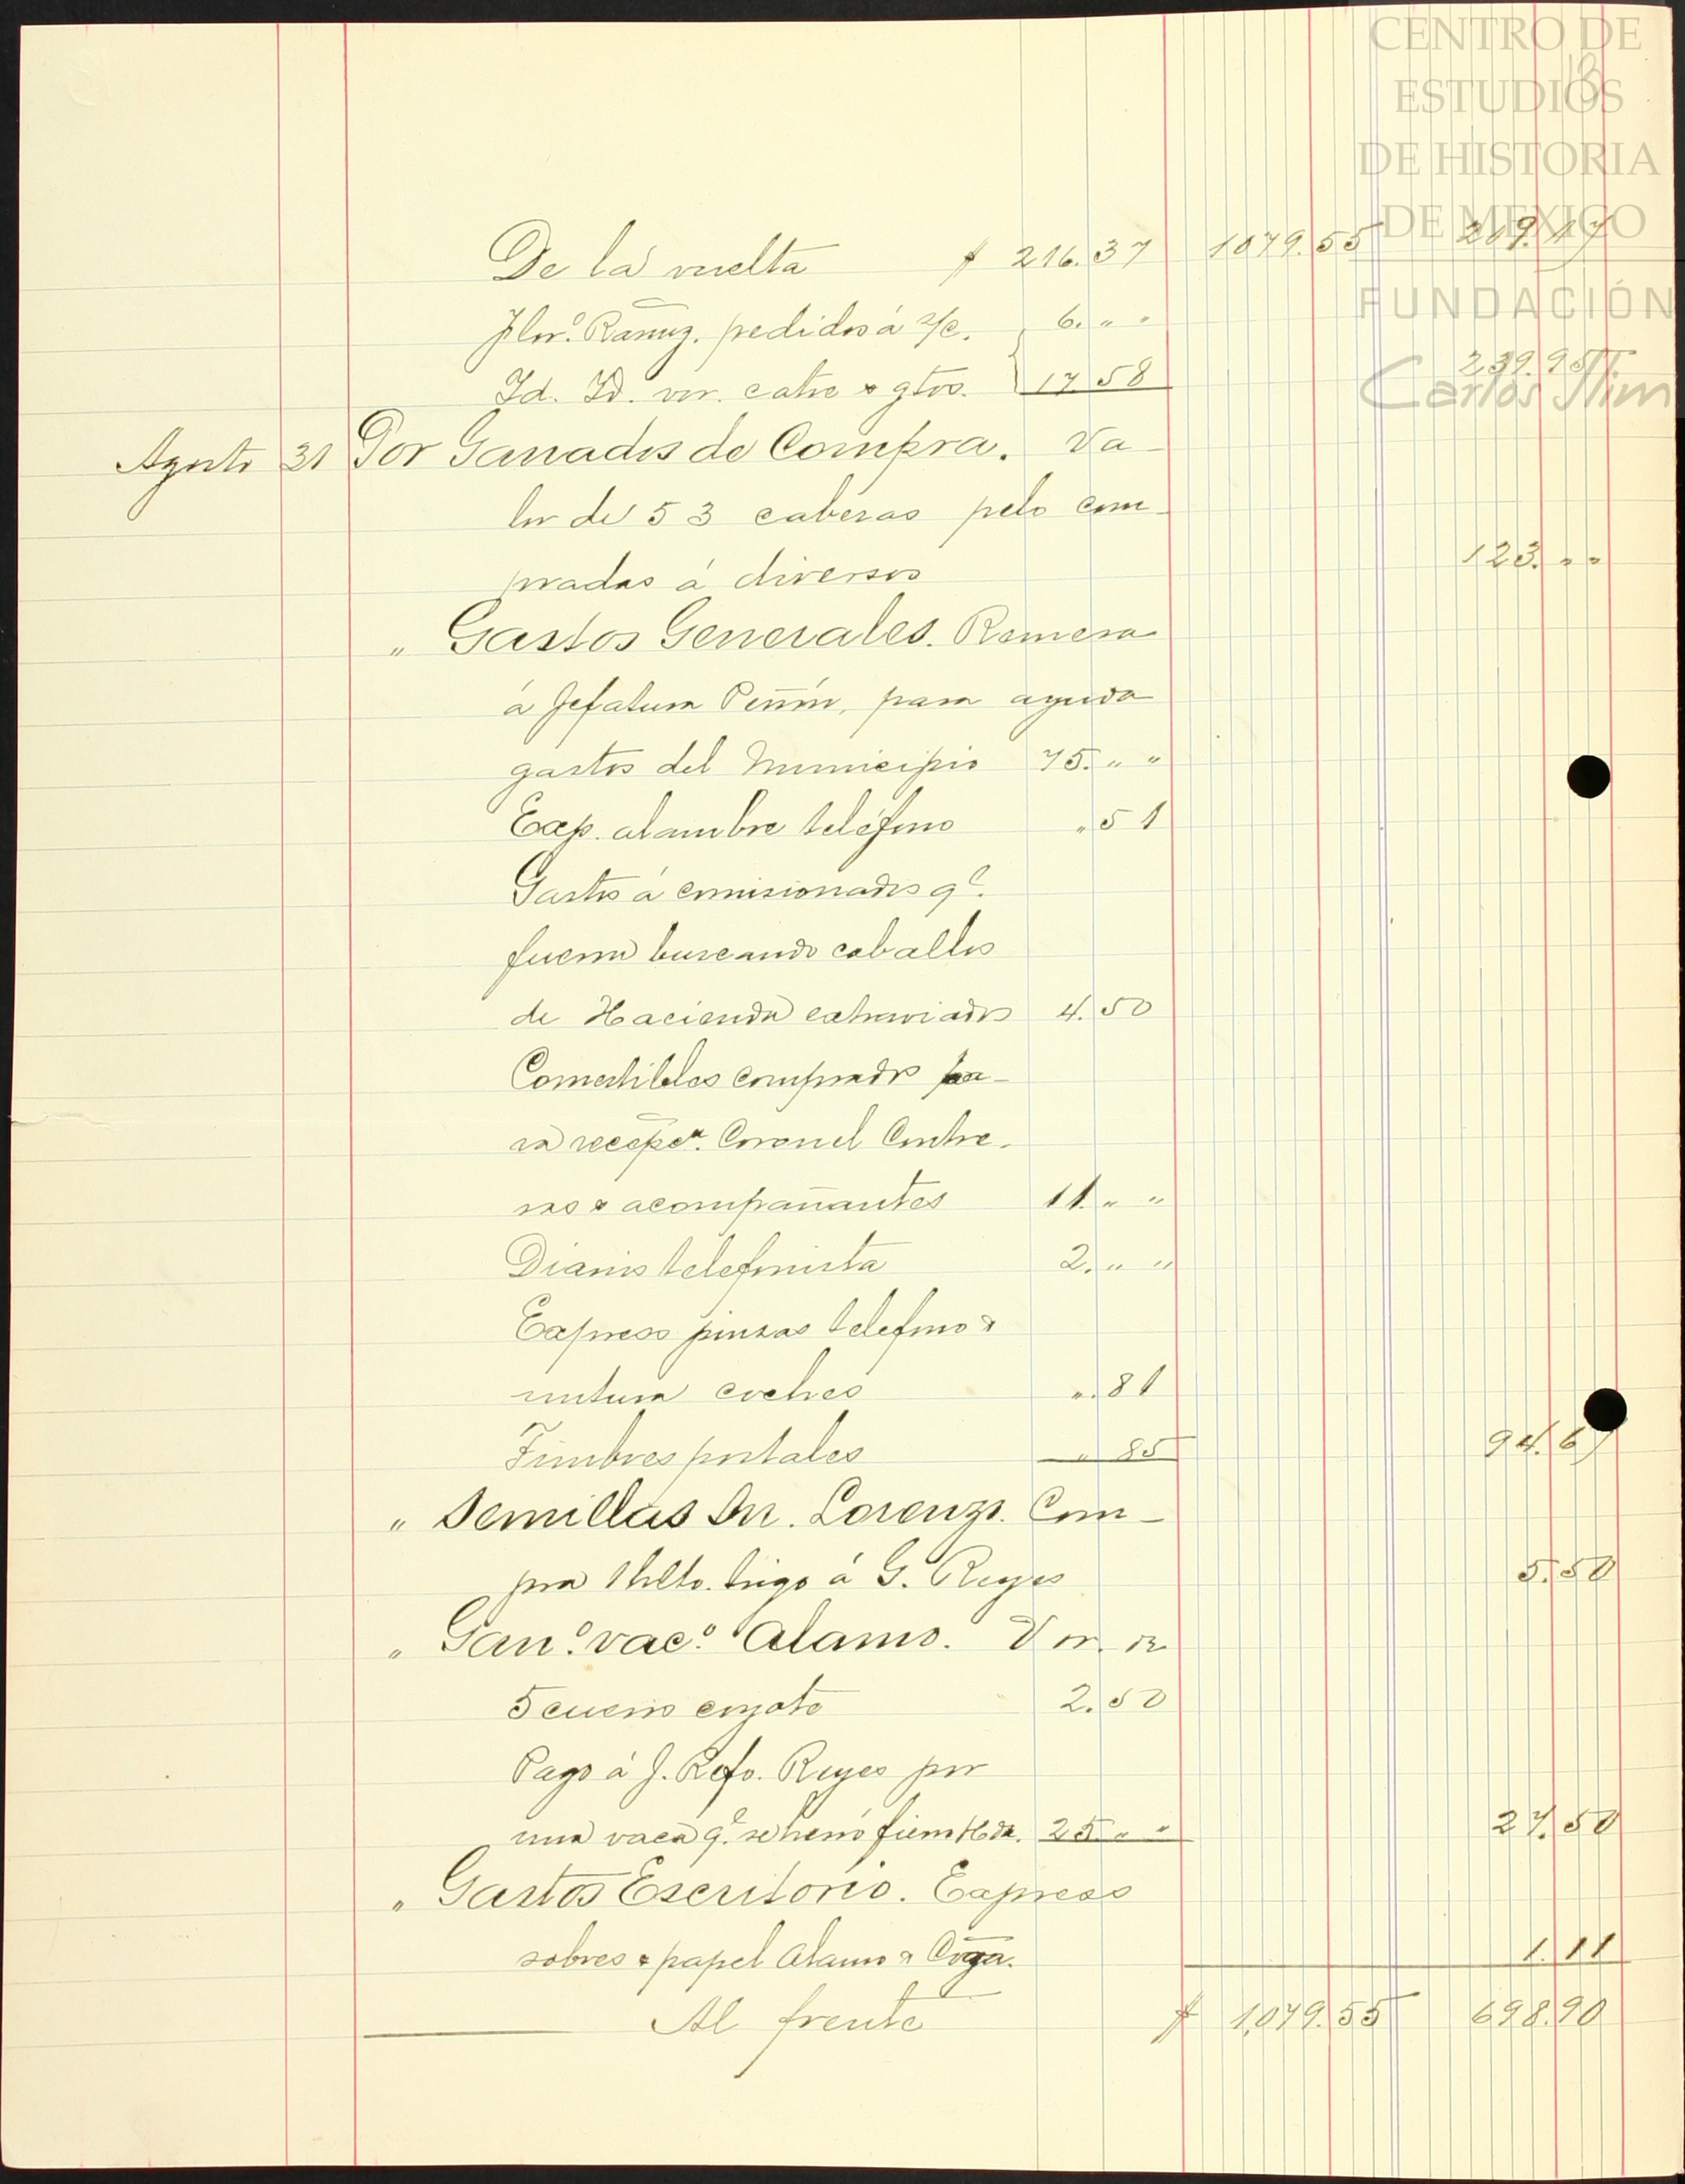 CENTRO DE
ESTUDIOS
DE HISTORIA
DE MEXICO
FUNDACIÓN
Carlos Slim
13
De la vuelta $ 216.37 1079.55 207.17
Flor.º Ramz. pedidos á s/c. 6. " "
Id. Id. vor. catre & gtos. 17 58 239.95
Agosto 31 Por Ganados de Compra. Va-
lor de 53 cabezas pelo com-
pradas á diversos 123. " "
" Gastos Generales. Remesa
á Jefatura Peñón, para ayuda
gastos del Municipio 75. " "
Exp. alambre teléfono " 51
Gastos á comisionados q.e
fueron buscando caballos
de Hacienda extraviados 4.50
Comestibles comprados pa-
ra recepcn. Coronel Contre-
ras & acompañantes 11. " "
Diario telefonista 2. " "
Express pinzas telefono &
untura coches ". 81
Timbres postales " 85 94.67
" Semillas Sn. Lorenzo. Com-
pra 1 hlto. trigo á G. Reyes 5.50
" Gan.º vac.º Alamo. Vor. de
5 cueros coyote 2.50
Pago á J. Refo. Reyes por
una vaca q.e se herró fierro Hda. 25 " " 27.50
" Gastos Escritorio. Express
sobres & papel Alamo & Coga. 1.11
Al frente $ 1,079.55 698.90